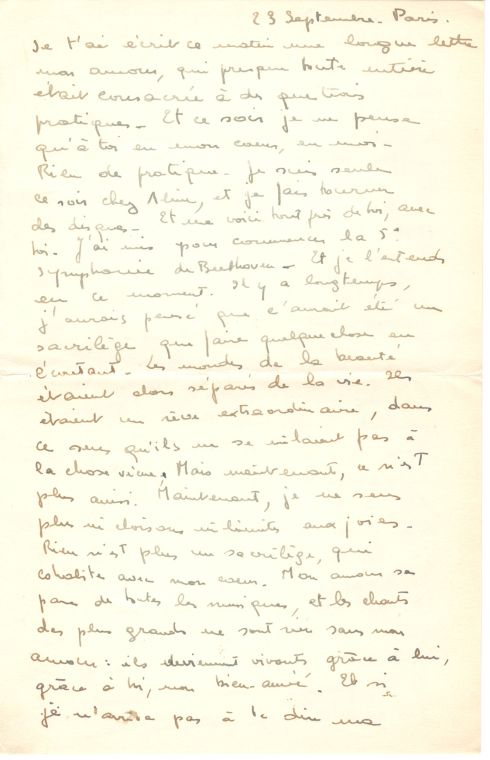 23 Septembre. Paris.
Je t'ai écrit ce matin une longue lettre
mon amour, qui presque toute entière
était consacrée à des questions
pratiques - Et ce soir je ne pense
qu'à toi en mon coeur, en moi -
Rien de pratique - Je suis seule
ce soir chez Aline, et je fais tourner
des disques - Et me voici tout près de toi, avec
toi - J'ai mis pour commencer la 5e
Symphonie de Beethoven - Et je l'entends
en ce moment. Il y a longtemps,
j'aurais pensé que c'aurait été un
sacrilège que faire quelque chose en
écoutant - Les mondes de la beauté
étaient alors séparés de la vie. Ils
étaient un rêve extraordinaire, dans
ce sens qu'ils ne se mêlaient pas à
la chose vécue. Mais maintenant, ce n'est
plus ainsi. Maintenant, je ne sens
plus ni cloisons ni limites aux joies -
Rien n'est plus un sacrilège, qui
cohabite avec mon coeur. Mon amour se
pare de toutes les musiques, et les chants
des plus grands ne sont rien sans mon
amour : ils deviennent vivants grâce à lui,
grâce à toi, mon bien-aimé. Et si
je n'arrive pas à te dire ma